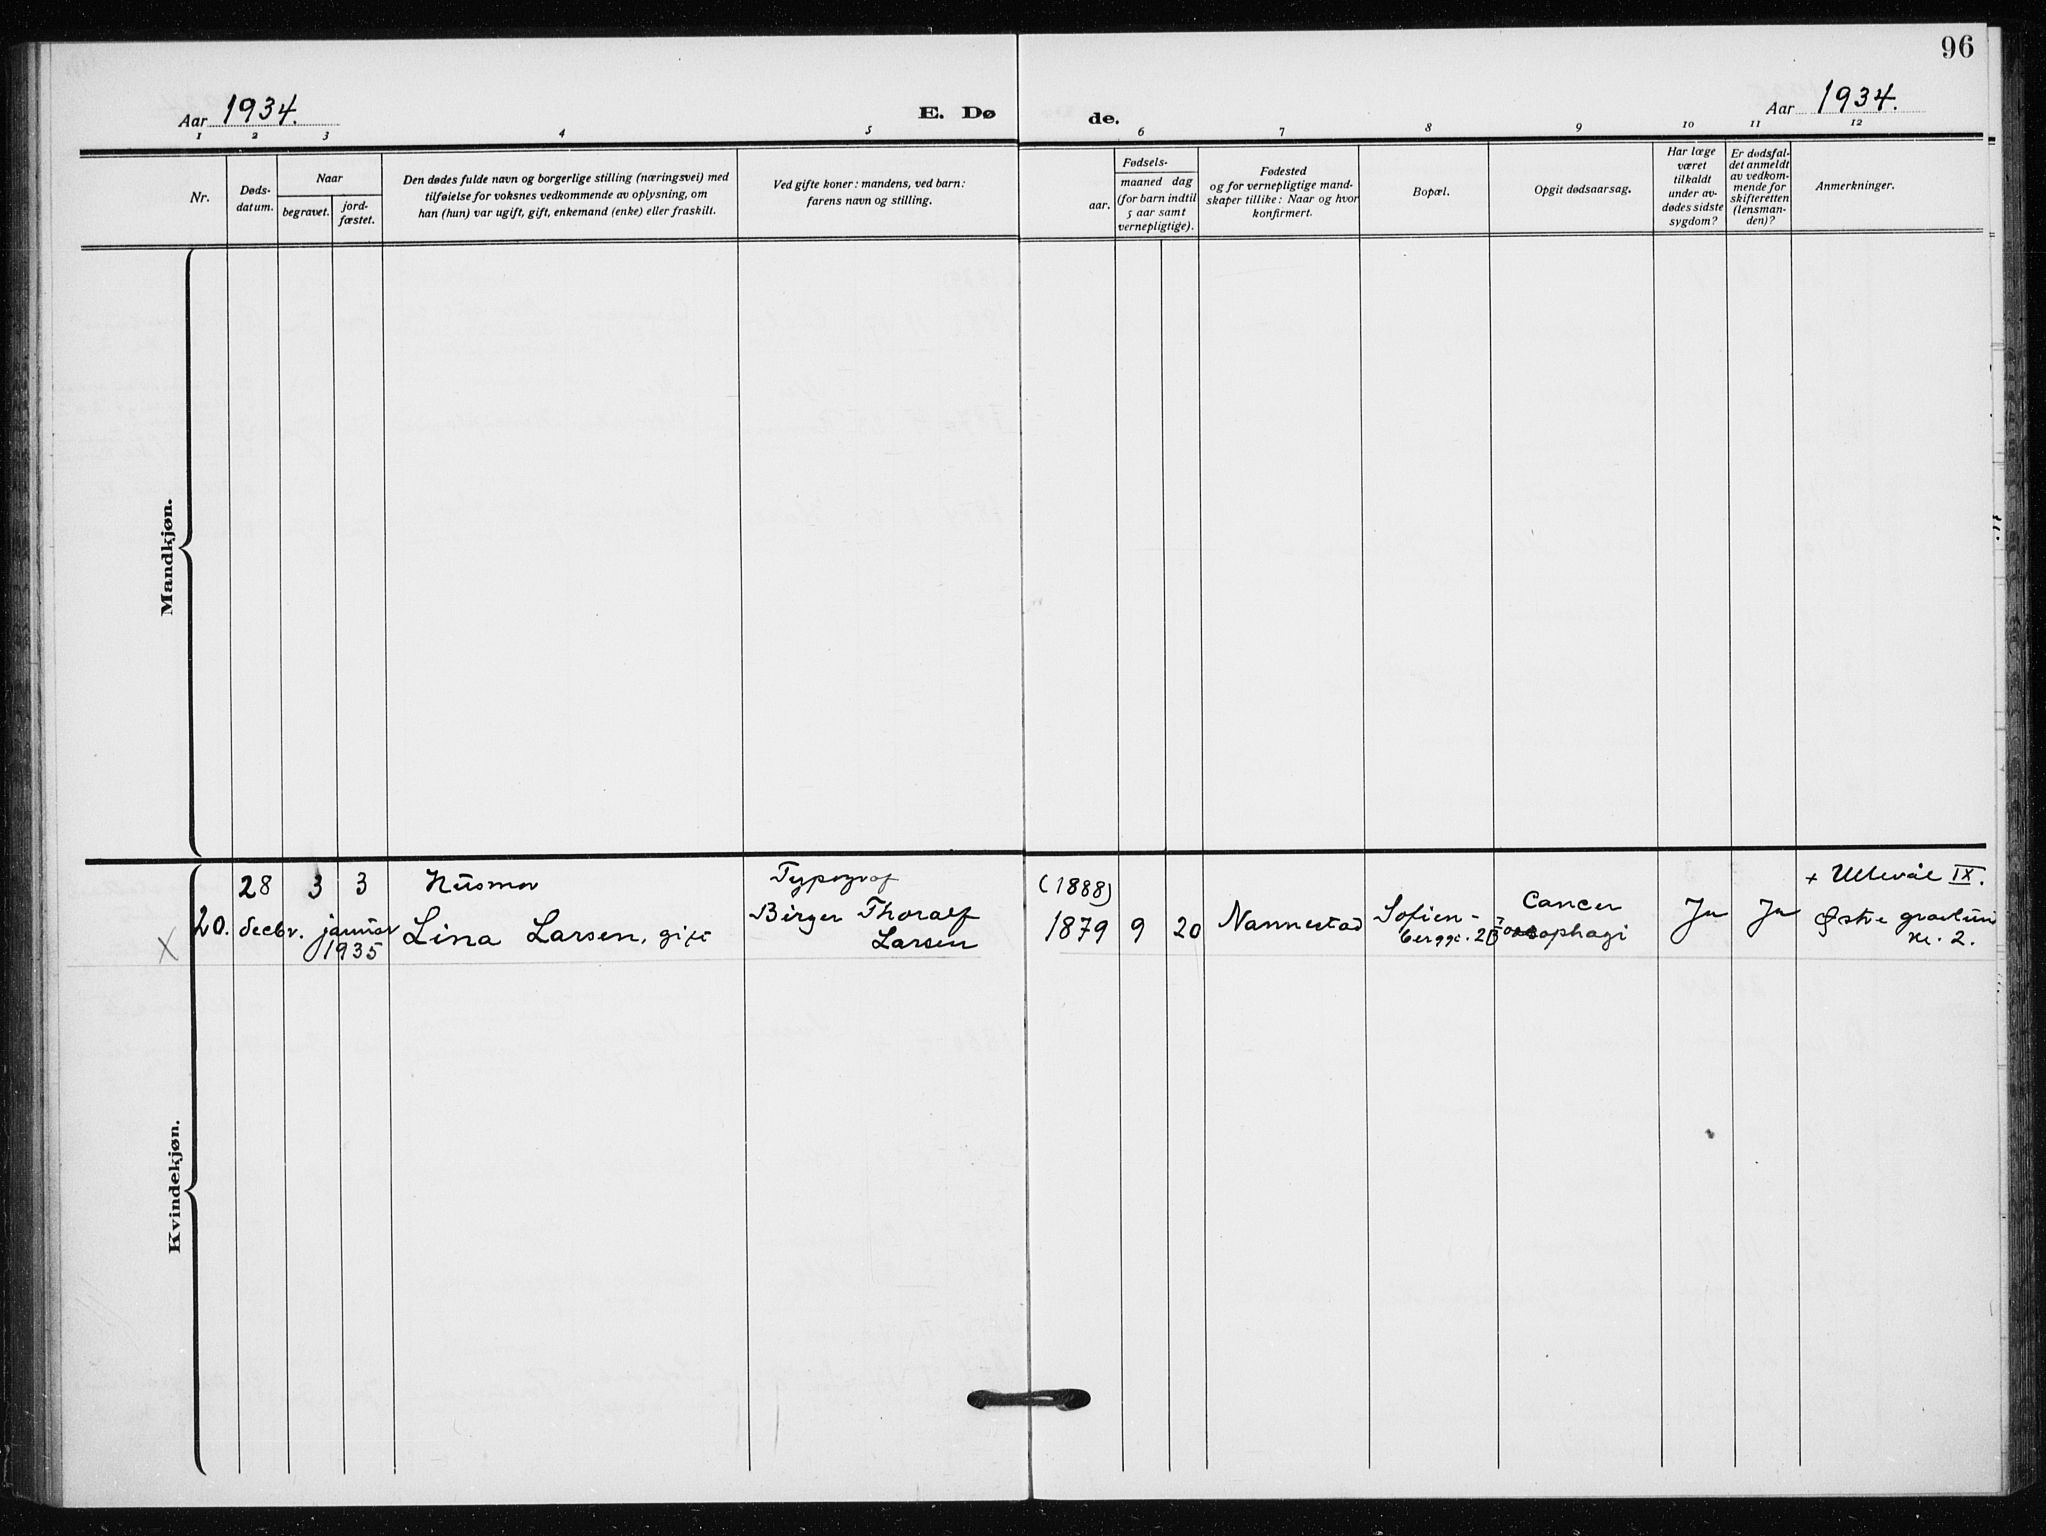 96
Aar 1934.
E. Dø
de.
Aar 1934.
1 2 3 4 5 6 7 8 9 10 11 12
Nr.
Døds-
datum.
Naar
begravet.
jord-
fæstet.
Den dødes fulde navn og borgerlige stilling (næringsvei) med
tilføielse for voksnes vedkommende av oplysning, om
han (hun) var ugift, gift, enkemand (enke) eller fraskilt.
Ved gifte koner: mandens, ved barn:
farens navn og stilling.
Fødsels-
aar.
maaned dag
(for barn indtil
5 aar samt
vernepligtige).
Fødested
og for vernepligtige mand-
skaper tillike: Naar og hvor
konfirmert.
Bopæl.
Opgit dødsaarsag.
Har læge
været
tilkaldt
under av-
dødes sidste
sygdom?
Er dødsfal-
det anmeldt
av vedkom-
mende for
skifteretten
(lensman-
den)?
Anmerkninger.
Mandkjøn.
Kvindekjøn.
X
20.
28
decbr.
3 3
januar
1935
Husmor
Lina Larsen, gift
Typograf
Birger Thoralf
Larsen
(1888)
1879 9 20
Nannestad
Sofien-
berggt. 2B
Cancer
oesophagi
Ja
Ja
+ Ullevål IX.
Østre gravlund
kr. 2.